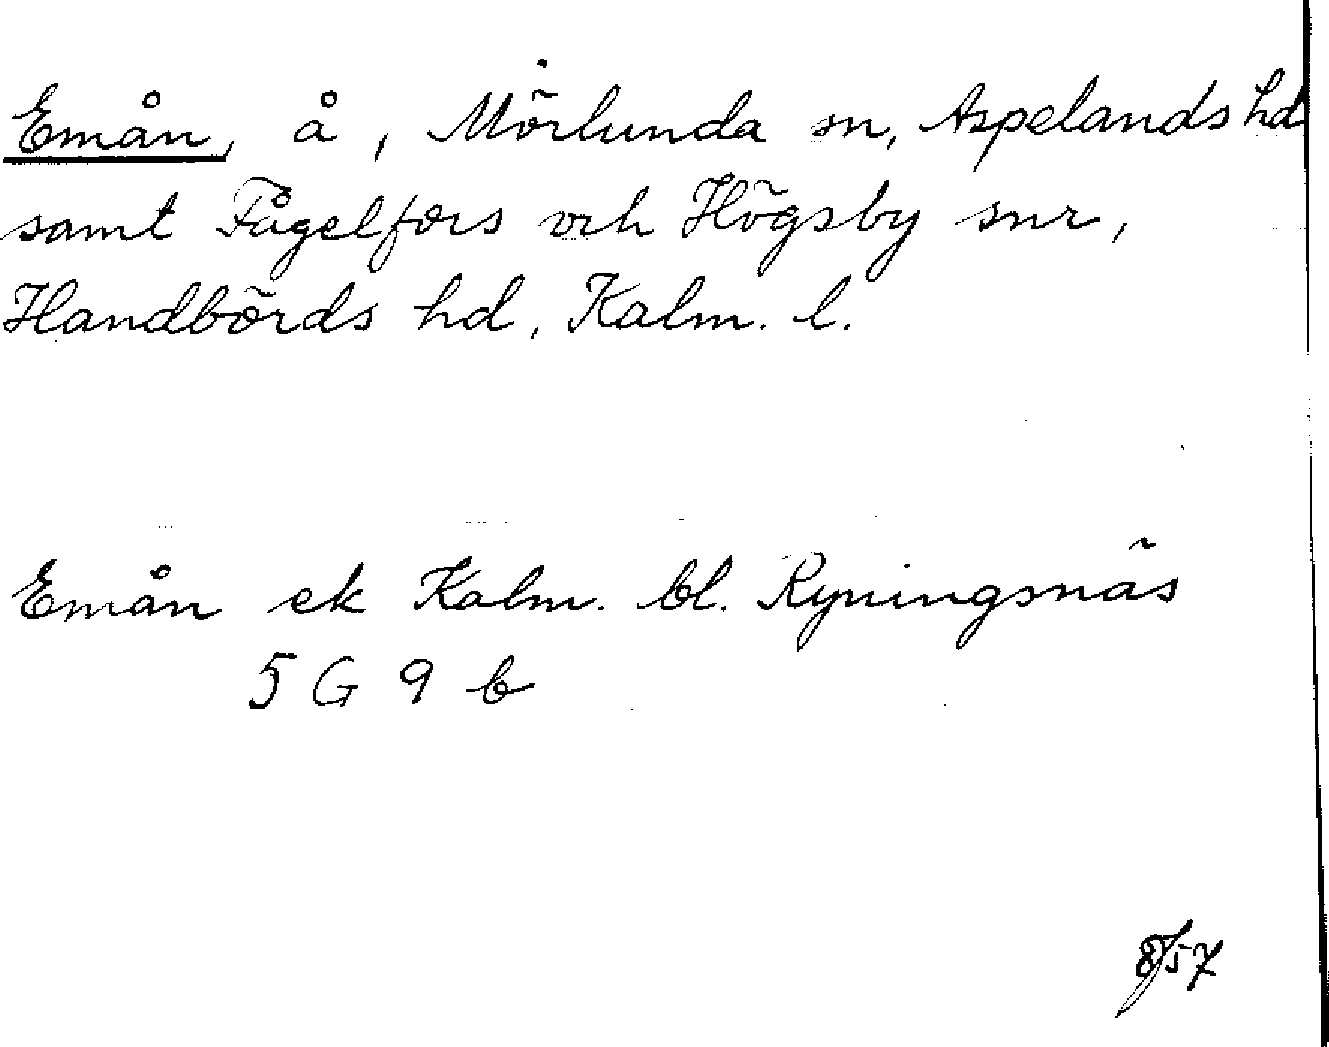 Emån, å, Mörlunda sn, Aspelands hd
samt Fågelfors och Högsby snr,
Handbörds hd, Kalm. l.
Emån ek Kalm. bl. Ryningsnäs
5 G 9 b